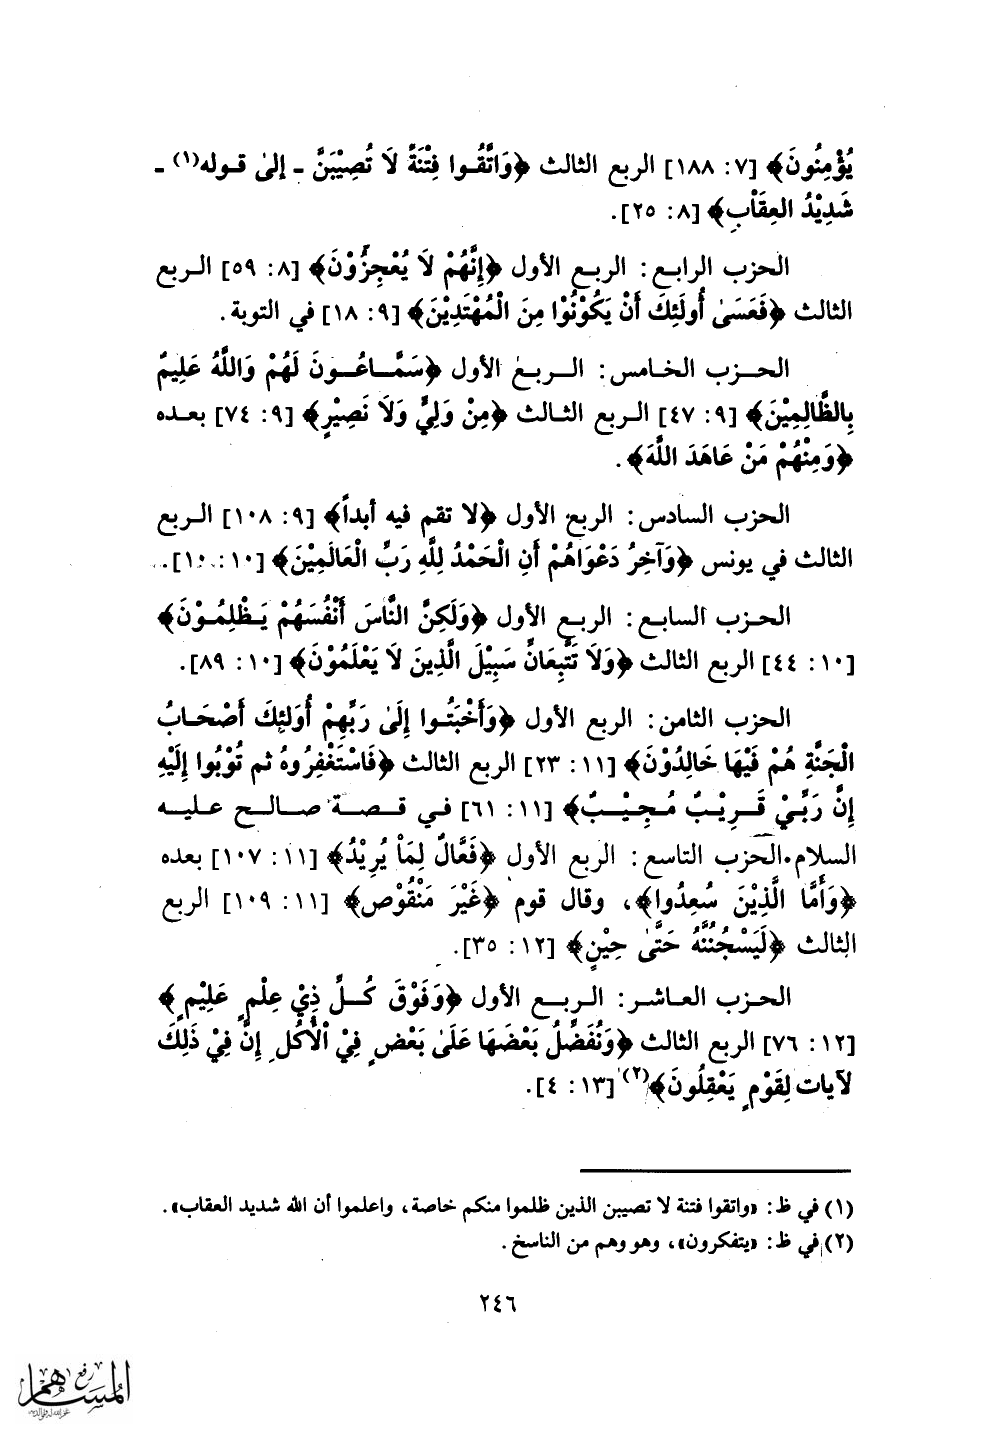 يُؤْمِنُونَ﴾ [٧: ١٨٨] الربع الثالث ﴿وَاتَّقُوا فِتْنَةً لَا تُصِيْبَنَّ ـ إلىٰ قوله(١) ـ
شَدِيْدُ العِقَاْبِ﴾ [٨: ٢٥].
الحزب الرابع: الربع الأول ﴿إِنَّهُمْ لَا يُعْجِزُوْنَ﴾ [٨: ٥٩] الربع
الثالث ﴿فَعَسَىٰ أُولَئِكَ أَنْ يَكُوْنُوْا مِنَ الْمُهْتَدِيْنَ﴾ [٩: ١٨] في التوبة.
الحزب الخامس: الربع الأول ﴿سَمَّاعُونَ لَهُمْ وَاللَّهُ عَلِيمٌ
بِالظَّالِمِيْنَ﴾ [٩: ٤٧] الربع الثالث ﴿مِنْ وَلِيٍّ وَلَا نَصِيْرٍ﴾ [٩: ٧٤] بعده
﴿وَمِنْهُمْ مَنْ عَاهَدَ اللَّهَ﴾.
الحزب السادس: الربع الأول ﴿لا تقم فيه أبداً﴾ [٩: ١٠٨] الربع
الثالث في يونس ﴿وَآخِرُ دَعْوَاهُمْ أَنِ الْحَمْدُ لِلَّهِ رَبِّ الْعَالَمِيْنَ﴾ [١٠: ١٠].
الحزب السابع: الربع الأول ﴿وَلَكِنَّ النَّاسَ أَنْفُسَهُمْ يَظْلِمُوْنَ﴾
[١٠: ٤٤] الربع الثالث ﴿وَلَا تَتَّبِعَانِّ سَبِيْلَ الَّذِينَ لَا يَعْلَمُوْنَ﴾ [١٠: ٨٩].
الحزب الثامن: الربع الأول ﴿وَأَخْبَتُوا إِلَىٰ رَبِّهِمْ أُوْلَئِكَ أَصْحَابُ
الْجَنَّةِ هُمْ فَيْهَا خَالِدُوْنَ﴾ [١١: ٢٣] الربع الثالث ﴿فَاسْتَغْفِرُوهُ ثم تُوْبُوا إِلَيْهِ
إِنَّ رَبِّيْ قَرِيْبٌ مُجِيْبٌ﴾ [١١: ٦١] في قصة صالح عليه
السلام. الحزب التاسع: الربع الأول ﴿فَعَّالٌ لِمَاْ يُرِيْدُ﴾ [١١: ١٠٧] بعده
﴿وَأَمَّا الَّذِيْنَ سُعِدُوا﴾، وقال قوم ﴿غَيْرَ مَنْقُوْصٍ﴾ [١١: ١٠٩] الربع
الثالث ﴿لَيَسْجُنُنَّهُ حَتَّىٰ حِيْنٍ﴾ [١٢: ٣٥].
الحزب العاشر: الربع الأول ﴿وَفَوْقَ كُلِّ ذِيْ عِلْمٍ عَلِيْمٍ﴾
[١٢: ٧٦] الربع الثالث ﴿وَنُفَضِّلُ بَعْضَهَا عَلَىٰ بَعْضٍ فِيْ الْأُكُلِ إِنَّ فِيْ ذَلِكَ
لآيات لِقَوْمٍ يَعْقِلُونَ﴾(٢) [١٣: ٤].
(١) في ظ: «واتقوا فتنة لا تصيبن الذين ظلموا منكم خاصة، واعلموا أن الله شديد العقاب».
(٢) في ظ: «يتفكرون»، وهو وهم من الناسخ.
٢٤٦
رفع
المساهم